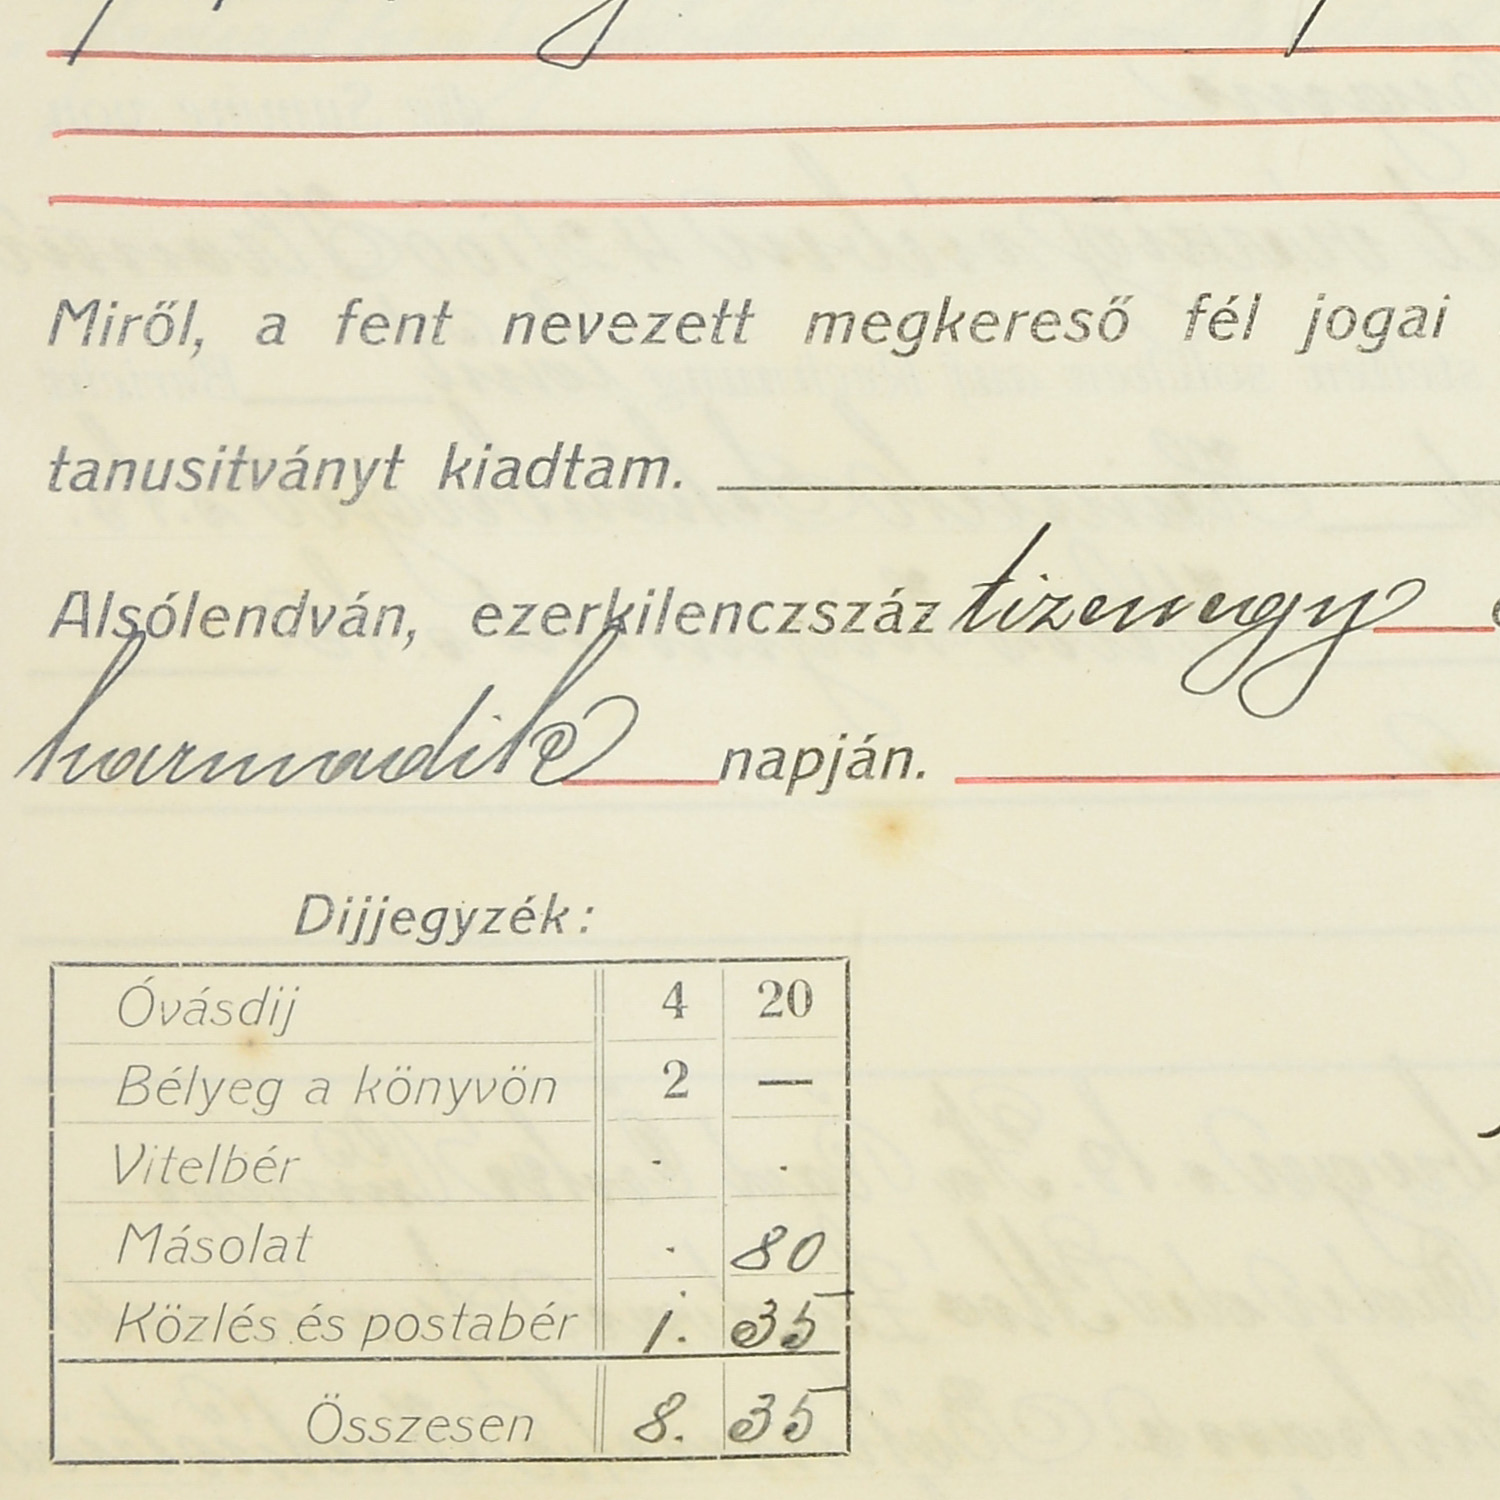 Miről, a fent nevezett megkereső fél jogai
tanusitványt kiadtam.
Alsólendván, ezerkilenczszáz tizenegy
harmadik napján.
Dijjegyzék:
Óvásdij 4 20
Bélyeg a könyvön 2 —
Vitelbér . .
Másolat . 80
Közlés és postabér 1. 35
Összesen 8. 35